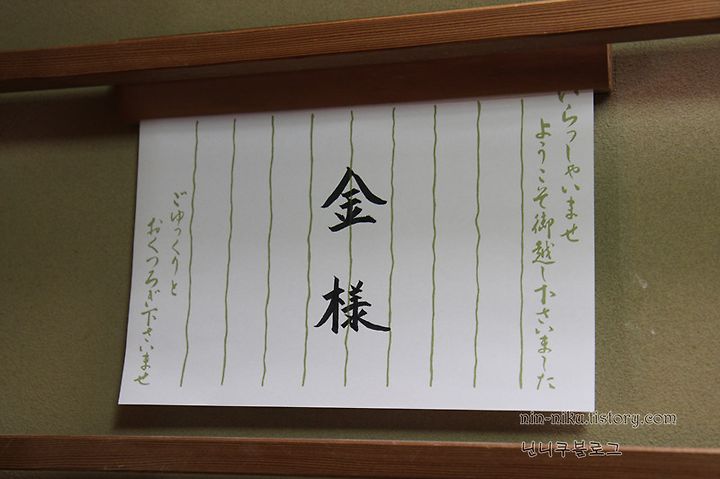 いらっしゃいませ
ようこそ御越し下さいました
金様
ごゆっくりと
おくつろぎ下さいませ
nin-niku.tistory.com
닌니쿠블로그